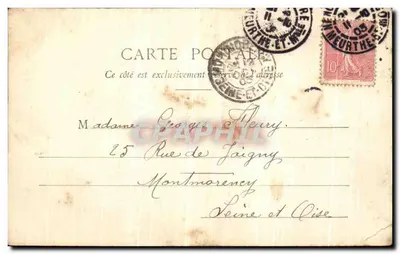 CARTE POSTALE
Ce côté est exclusivement réservé à l'adresse
MEURTHE-ET-MLLE
MEURTHE-ET
SEINE-ET-OISE
10
Madame Georges Fleury
25 Rue de Joigny
Montmorency
Seine et Oise